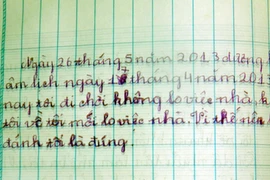 Ngày 26 tháng 5 năm 2013 dương
âm lịch ngày 17 tháng 4 năm 201
nay tôi đi chơi không lo việc nhà
tôi về tôi mới lo việc nhà. Vì thế nên
đánh tôi là đúng.